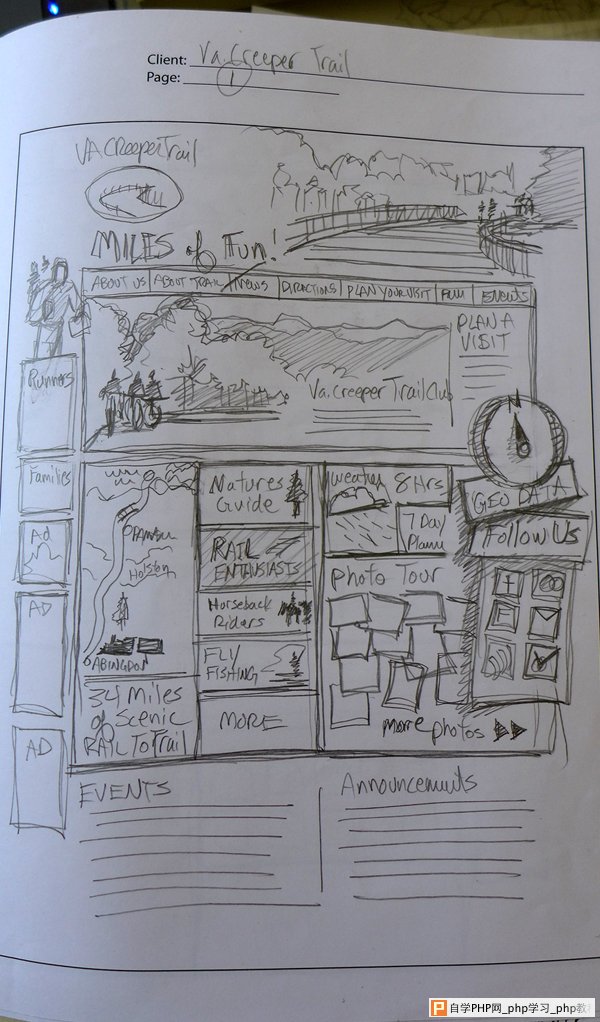 Client: Va. Creeper Trail
Page: 1
VA. CREEPER Trail
MILES of Fun!
ABOUT US
ABOUT TRAIL
NEWS
DIRECTIONS
PLAN YOUR VISIT
FUN
EVENTS
PLAN A
VISIT
Va. Creeper Trail Club
N
Runners
Families
Ad
AD
AD
Holston
ABINGDON
34 Miles
of Scenic
RAIL To Trail
Natures
Guide
RAIL
ENTHUSIASTS
Horseback
Riders
FLY
FISHING
MORE
weather 8 Hrs
7 Day
Photo Tour
more photos
GEO DATA
Follow Us
EVENTS
Announcements
自学PHP网_php学习_php教